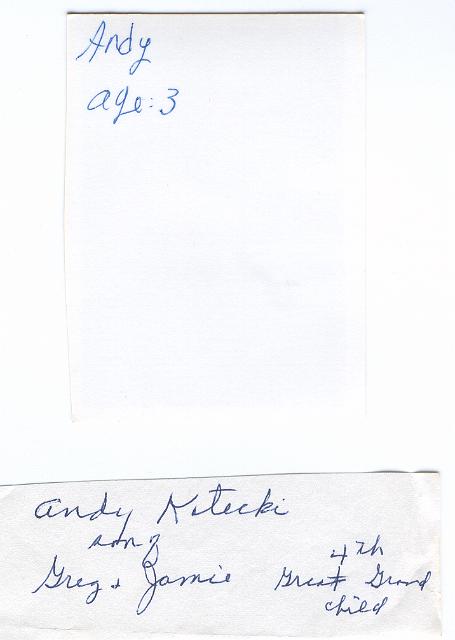 Andy
age: 3
Andy Kotecki
son of
Greg & Jamie
4th
Great Grand
child